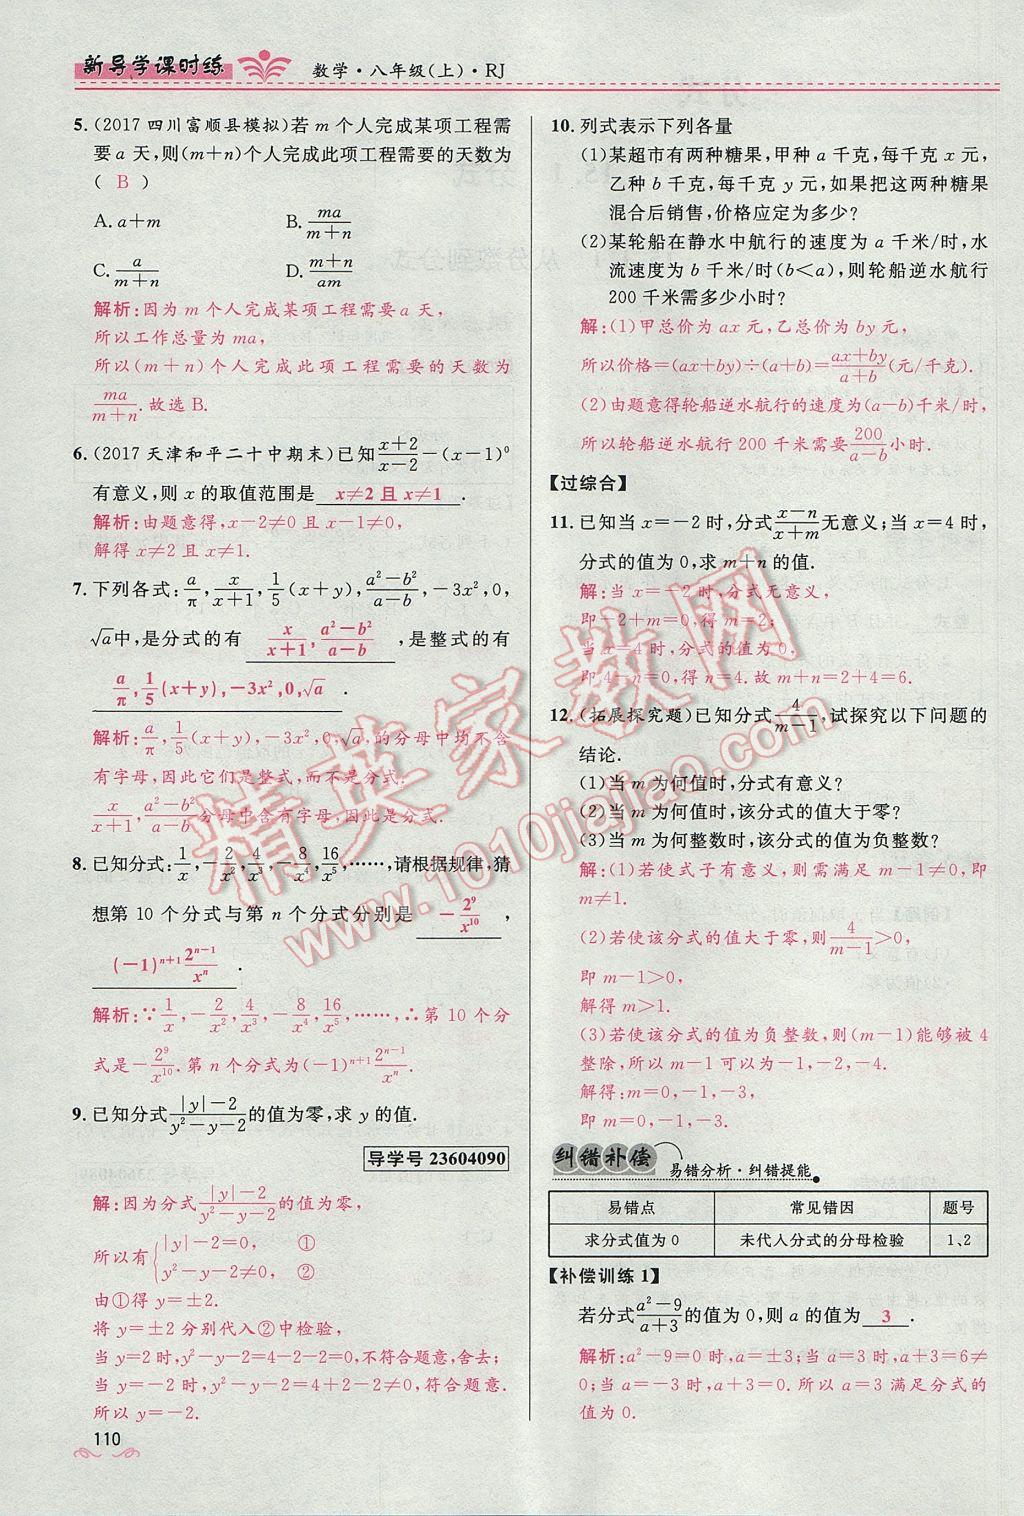 新导学课时练 数学·八年级(上)·RJ
5.(2017四川富顺县模拟)若m个人完成某项工程需
要a天,则(m+n)个人完成此项工程需要的天数为
( B )
A. a+m B. ma/(m+n)
C. a/(m+n) D. (m+n)/am
解析:因为m个人完成某项工程需要a天,
所以工作总量为ma,
所以(m+n)个人完成此项工程需要的天数为
ma/(m+n).故选B.
6.(2017天津和平二十中期末)已知(x+2)/(x-2)-(x-1)⁰
有意义,则x的取值范围是 x≠2且x≠1 .
解析:由题意得,x-2≠0且x-1≠0,
解得x≠2且x≠1.
7.下列各式:a/π,x/(x+1),1/5(x+y),(a²-b²)/(a-b),-3x²,0,
√a中,是分式的有 x/(x+1),(a²-b²)/(a-b) ,是整式的有
a/π,1/5(x+y),-3x²,0,√a .
解析:a/π,1/5(x+y),-3x²,0,√a,的分母中均不含
有字母,因此它们是整式,而不是分式.
x/(x+1),(a²-b²)/(a-b)分母中含有字母,因此是分式.
8.已知分式:1/x,-2/x²,4/x³,-8/x⁴,16/x⁵,……,请根据规律,猜
想第10个分式与第n个分式分别是 -2⁹/x¹⁰ ,
(-1)ⁿ⁺¹2ⁿ⁻¹/xⁿ .
解析:∵1/x,-2/x²,4/x³,-8/x⁴,16/x⁵,……,∴第10个分
式是-2⁹/x¹⁰.第n个分式为(-1)ⁿ⁺¹2ⁿ⁻¹/xⁿ.
9.已知分式(|y|-2)/(y²-y-2)的值为零,求y的值.
导学号 23604090
解:因为分式(|y|-2)/(y²-y-2)的值为零,
所以有{|y|-2=0, ①
y²-y-2≠0, ②
由①得y=±2.
将y=±2分别代入②中检验,
当y=2时,y²-y-2=4-2-2=0,不符合题意,舍去;
当y=-2时,y²-y-2=4+2-2=4≠0,符合题意.
所以y=-2.
110
10.列式表示下列各量
(1)某超市有两种糖果,甲种a千克,每千克x元,
乙种b千克,每千克y元,如果把这两种糖果
混合后销售,价格应定为多少?
(2)某轮船在静水中航行的速度为a千米/时,水
流速度为b千米/时(b<a),则轮船逆水航行
200千米需多少小时?
解:(1)甲总价为ax元,乙总价为by元,
所以价格=(ax+by)÷(a+b)=(ax+by)/(a+b)(元/千克).
(2)由题意得轮船逆水航行的速度为(a-b)千米/时,
所以轮船逆水航行200千米需要200/(a-b)小时.
【过综合】
11.已知当x=-2时,分式(x-n)/(x+m)无意义;当x=4时,
分式的值为0,求m+n的值.
解:当x=-2时,分式无意义,
即-2+m=0,得m=2;
当x=4时,分式的值为0,
即4-n=0,得n=4.故m+n=2+4=6.
12.(拓展探究题)已知分式4/(m-1),试探究以下问题的
结论.
(1)当m为何值时,分式有意义?
(2)当m为何值时,该分式的值大于零?
(3)当m为何整数时,该分式的值为负整数?
解:(1)若使式子有意义,则需满足m-1≠0,即
m≠1.
(2)若使该分式的值大于零,则4/(m-1)>0,
即m-1>0,
解得m>1.
(3)若使该分式的值为负整数,则(m-1)能够被4
整除,所以m-1可以为-1,-2,-4.
解得:m=0,-1,-3,
即m=0,-1,-3.
纠错补偿 易错分析·纠错提能
易错点 常见错因 题号
求分式值为0 未代人分式的分母检验 1、2
【补偿训练1】
若分式(a²-9)/(a+3)的值为0,则a的值为 3 .
解析:a²-9=0,则a=±3;当a=3时,a+3=6≠
0;当a=-3时,a+3=0.所以a=3满足分式的
值为0.
精英家教网
www.1010jiajiao.com